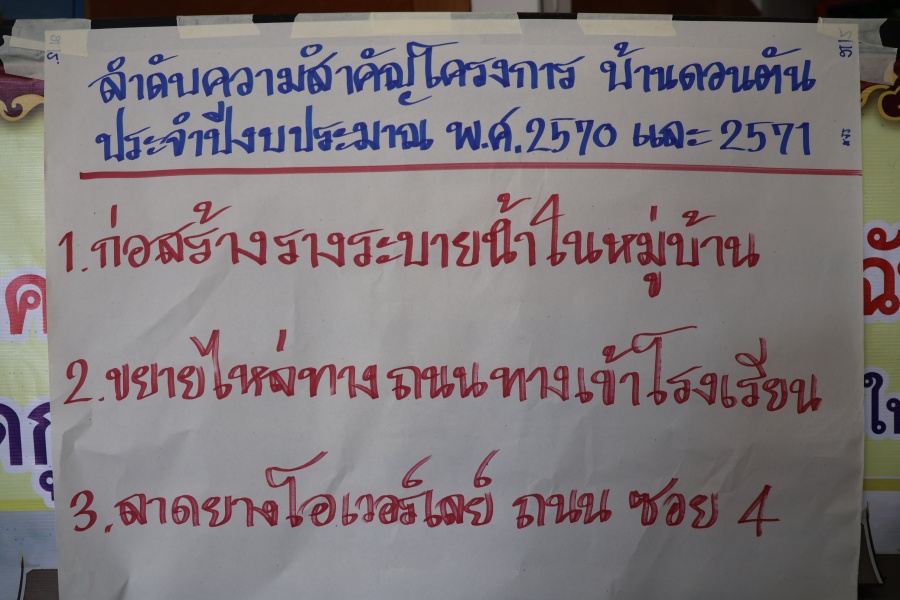 ลำดับความสำคัญโครงการ บ้านดวนตัน
ประจำปีงบประมาณ พ.ศ.2570 และ 2571
1.ก่อสร้างรางระบายน้ำในหมู่บ้าน
2.ขยายไหล่ทาง ถนนทางเข้าโรงเรียน
3.ลาดยางโอเวอร์เลย์ ถนน ซอย 4